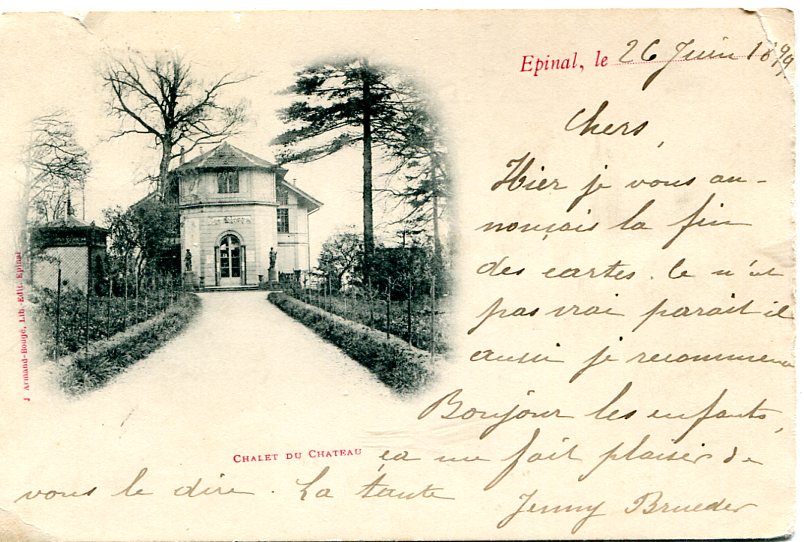 Epinal, le 26 Juin 1899
Chers,
Hier je vous an-
nonçais la fin
des cartes. Ce n'est
pas vrai parait il
aussi je recommence
Bonjour les enfants,
ça me fait plaisir de
vous le dire. La tante Jenny Brueder
CHALET DU CHATEAU
J Armand-Bougé, Lib.-Edit. Epinal